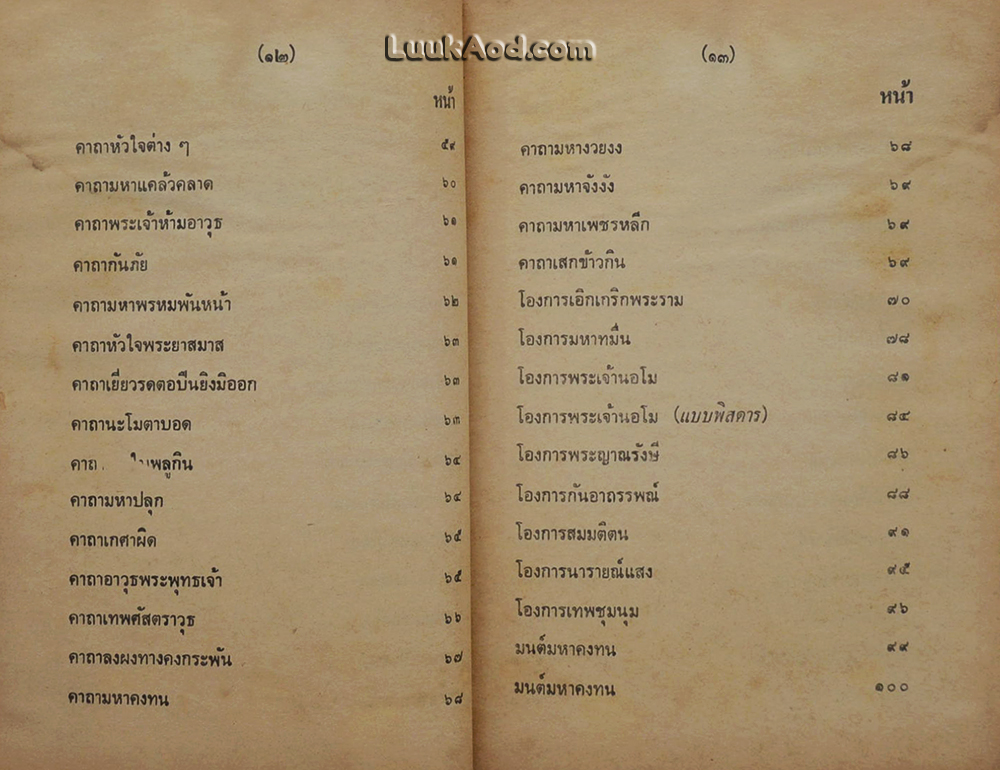 LuukAod.com
(๑๒)
หน้า
คาถาหัวใจต่าง ๆ ๕๙
คาถามหาแคล้วคลาด ๖๐
คาถาพระเจ้าห้ามอาวุธ ๖๑
คาถากันภัย ๖๑
คาถามหาพรหมพันหน้า ๖๒
คาถาหัวใจพระยาสมาส ๖๓
คาถาเยี่ยวรดตอปืนยิงมิออก ๖๓
คาถานะโมตาบอด ๖๓
พลูกิน ๖๔
คาถามหาปลุก ๖๔
คาถาเกศาผิด ๖๕
คาถาอาวุธพระพุทธเจ้า ๖๕
คาถาเทพศัสตราวุธ ๖๖
คาถาลงผงทางคงกระพัน ๖๗
คาถามหาคงทน ๖๘
(๑๓)
หน้า
คาถามหางวยงง ๖๘
คาถามหาจังงัง ๖๙
คาถามหาเพชรหลีก ๖๙
คาถาเสกข้าวกิน ๖๙
โองการเอิกเกริกพระราม ๗๐
โองการมหาทมื่น ๗๘
โองการพระเจ้านอโม ๘๑
โองการพระเจ้านอโม (แบบพิสดาร) ๘๔
โองการพระญาณรังษี ๘๖
โองการกันอาถรรพณ์ ๘๘
โองการสมมติตน ๙๑
โองการนารายณ์แสง ๙๕
โองการเทพชุมนุม ๙๖
มนต์มหาคงทน ๙๙
มนต์มหาคงทน ๑๐๐